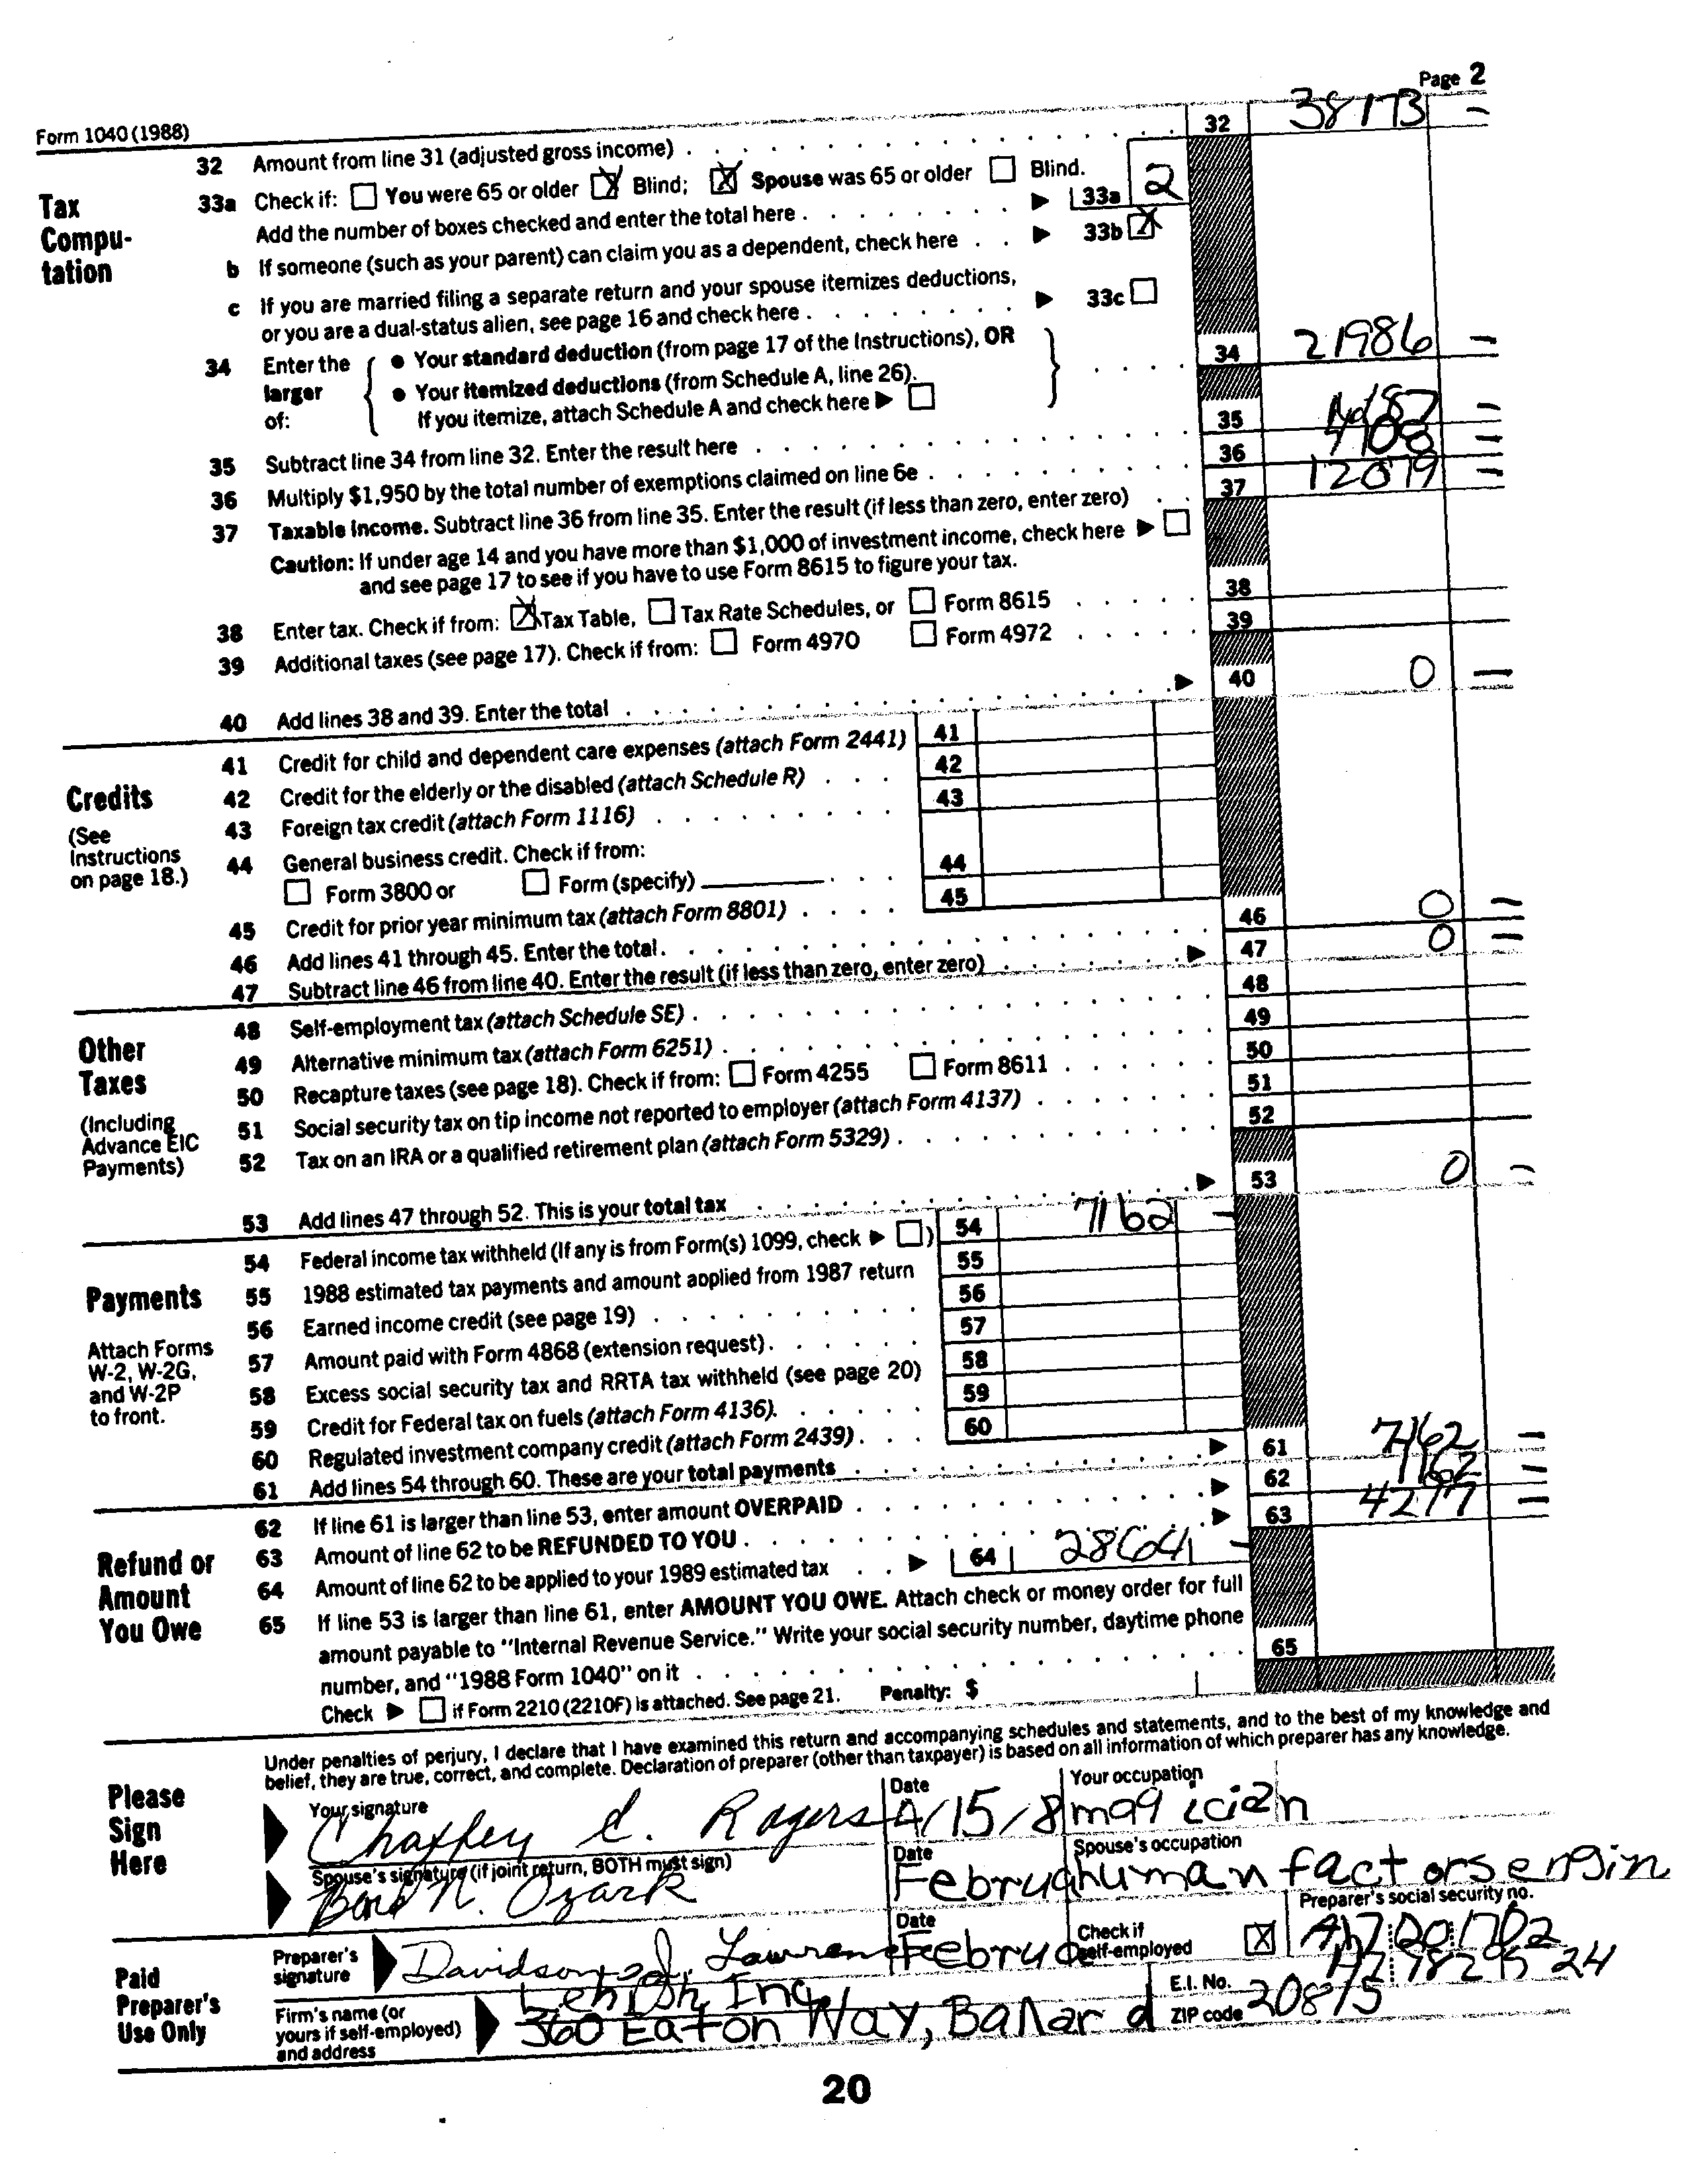 Page 2
Form 1040 (1988)
32 Amount from line 31 (adjusted gross income) 32 38173 —
Tax Compu-tation
33a Check if: You were 65 or older X Blind; X Spouse was 65 or older Blind.
Add the number of boxes checked and enter the total here 33a 2
b If someone (such as your parent) can claim you as a dependent, check here 33b X
c If you are married filing a separate return and your spouse itemizes deductions,
or you are a dual-status alien, see page 16 and check here 33c
34 Enter the larger of:
• Your standard deduction (from page 17 of the Instructions), OR
• Your itemized deductions (from Schedule A, line 26).
If you itemize, attach Schedule A and check here
34 21986 —
35 Subtract line 34 from line 32. Enter the result here 35 —
36 Multiply $1,950 by the total number of exemptions claimed on line 6e 36 —
37 Taxable Income. Subtract line 36 from line 35. Enter the result (if less than zero, enter zero) 37 —
Caution: If under age 14 and you have more than $1,000 of investment income, check here
and see page 17 to see if you have to use Form 8615 to figure your tax.
38 Enter tax. Check if from: X Tax Table, Tax Rate Schedules, or Form 8615 38
39 Additional taxes (see page 17). Check if from: Form 4970 Form 4972 39
40 Add lines 38 and 39. Enter the total 40 0 —
Credits
(See Instructions on page 18.)
41 Credit for child and dependent care expenses (attach Form 2441) 41
42 Credit for the elderly or the disabled (attach Schedule R) 42
43 Foreign tax credit (attach Form 1116) 43
44 General business credit. Check if from:
Form 3800 or Form (specify) 44
45 Credit for prior year minimum tax (attach Form 8801) 45
46 Add lines 41 through 45. Enter the total. 46 0 —
47 Subtract line 46 from line 40. Enter the result (if less than zero, enter zero) 47 0 —
Other Taxes
(Including Advance EIC Payments)
48 Self-employment tax (attach Schedule SE) 48
49 Alternative minimum tax (attach Form 6251) 49
50 Recapture taxes (see page 18). Check if from: Form 4255 Form 8611 50
51 Social security tax on tip income not reported to employer (attach Form 4137) 51
52 Tax on an IRA or a qualified retirement plan (attach Form 5329) 52
53 Add lines 47 through 52. This is your total tax 53 0 —
Payments
Attach Forms W-2, W-2G, and W-2P to front.
54 Federal income tax withheld (If any is from Form(s) 1099, check ) 54 7162 —
55 1988 estimated tax payments and amount applied from 1987 return 55
56 Earned income credit (see page 19) 56
57 Amount paid with Form 4868 (extension request). 57
58 Excess social security tax and RRTA tax withheld (see page 20) 58
59 Credit for Federal tax on fuels (attach Form 4136). 59
60 Regulated investment company credit (attach Form 2439) 60
61 Add lines 54 through 60. These are your total payments 61 7162 —
Refund or Amount You Owe
62 If line 61 is larger than line 53, enter amount OVERPAID 62 7162 —
63 Amount of line 62 to be REFUNDED TO YOU 63 —
64 Amount of line 62 to be applied to your 1989 estimated tax 64 —
65 If line 53 is larger than line 61, enter AMOUNT YOU OWE. Attach check or money order for full
amount payable to "Internal Revenue Service." Write your social security number, daytime phone
number, and "1988 Form 1040" on it 65
Check if Form 2210 (2210F) is attached. See page 21. Penalty: $
Please Sign Here
Under penalties of perjury, I declare that I have examined this return and accompanying schedules and statements, and to the best of my knowledge and
belief, they are true, correct, and complete. Declaration of preparer (other than taxpayer) is based on all information of which preparer has any knowledge.
Your signature Date Your occupation
Rogers 4/15/8 magician
Spouse's signature (if joint return, BOTH must sign) Date Spouse's occupation
N. Ozark Februa human factors engin
Paid Preparer's Use Only
Preparer's signature Date Check if self-employed X Preparer's social security no.
Davidson Februa
Firm's name (or yours if self-employed) and address E.I. No.
Inc.
360 Eaton Way, Ballard ZIP code 20815
20